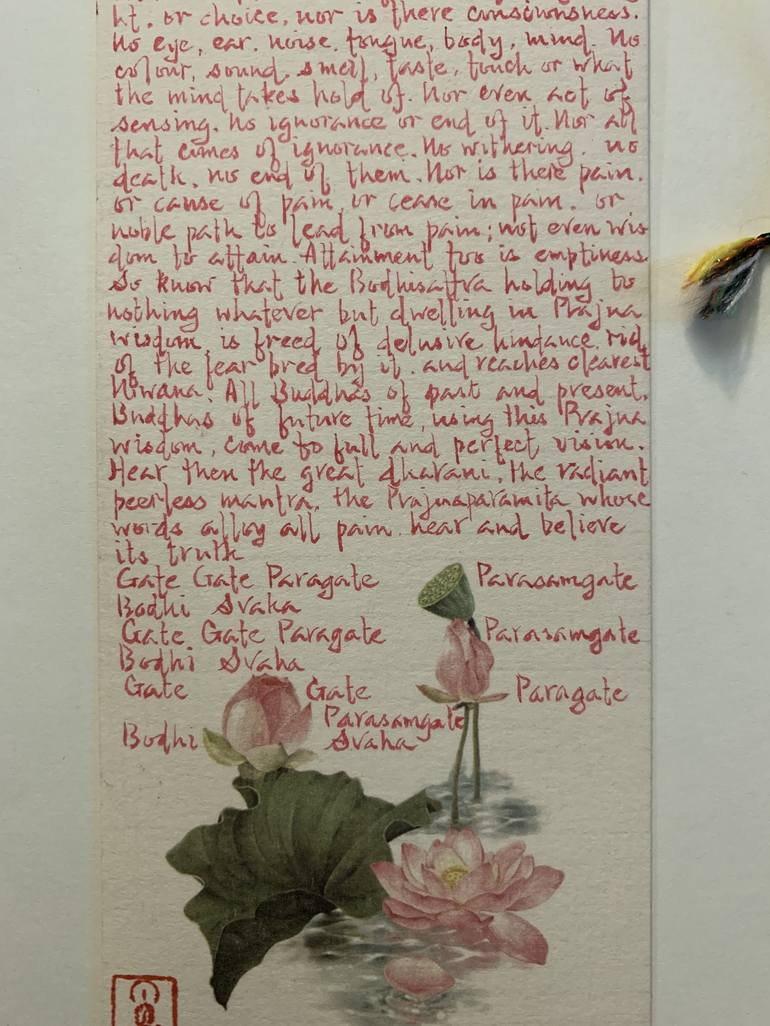 ht, or choice, nor is there consciousness.
No eye, ear, noise, tongue, body, mind. No
colour, sound, smell, taste, touch or what
the mind takes hold of. Nor even act of
sensing. No ignorance or end of it. Nor all
that comes of ignorance. No withering, no
death, no end of them. Nor is there pain,
or cause of pain, or cease in pain, or
noble path to lead from pain; not even wis
dom to attain. Attainment too is emptiness.
So know that the Bodhisattva holding to
nothing whatever but dwelling in Prajna
wisdom is freed of delusive hindance, rid
of the fear bred by it, and reaches clearest
Nirvana. All Buddhas of past and present,
Buddhas of future time, using this Prajna
wisdom, come to full and perfect vision.
Hear then the great dharani, the radiant
peerless mantra, the Prajnaparamita whose
words allay all pain. hear and believe
its truth
Gate Gate Paragate Parasamgate
Bodhi Svaha
Gate Gate Paragate Parasamgate
Bodhi Svaha
Gate Gate Paragate
Parasamgate
Bodhi Svaha